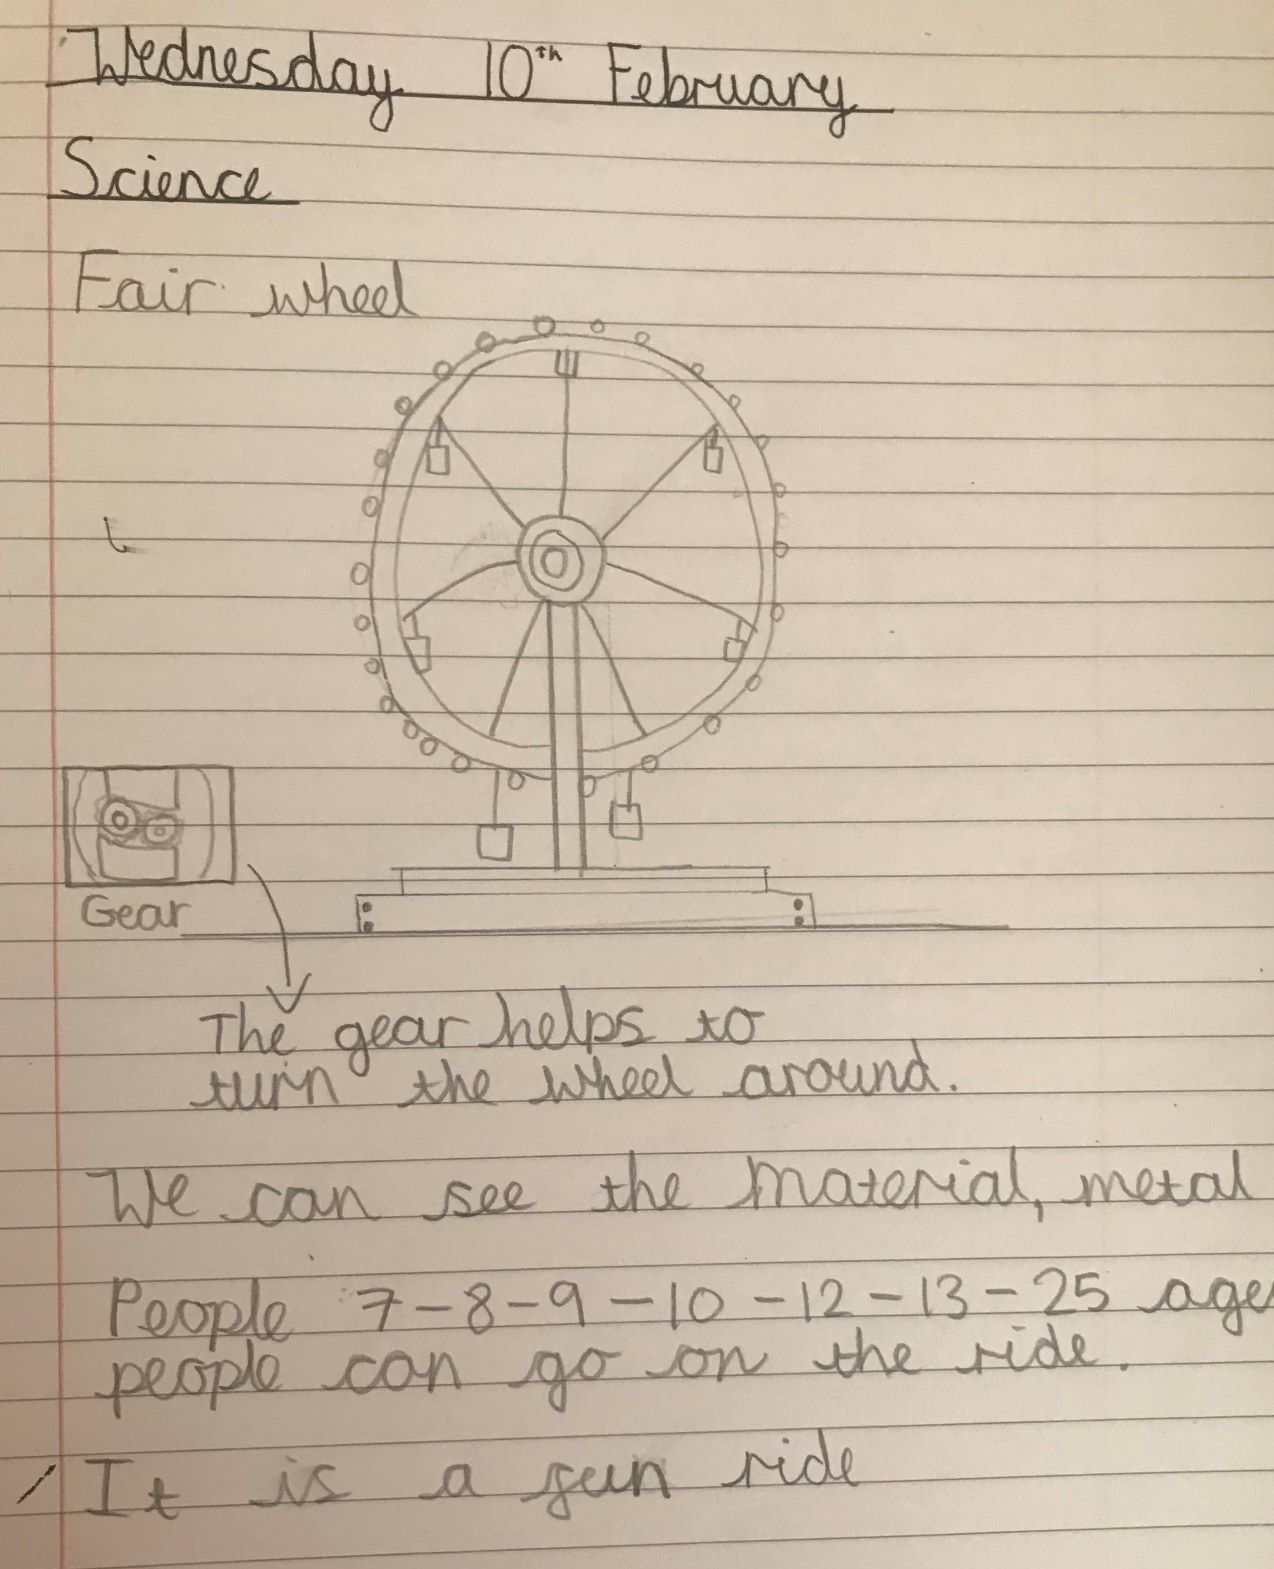 Wednesday 10th February
Science
Fair wheel
Gear
The gear helps to
turn the wheel around.
We can see the material, metal
People 7-8-9-10-12-13-25 age
people can go on the ride.
It is a fun ride